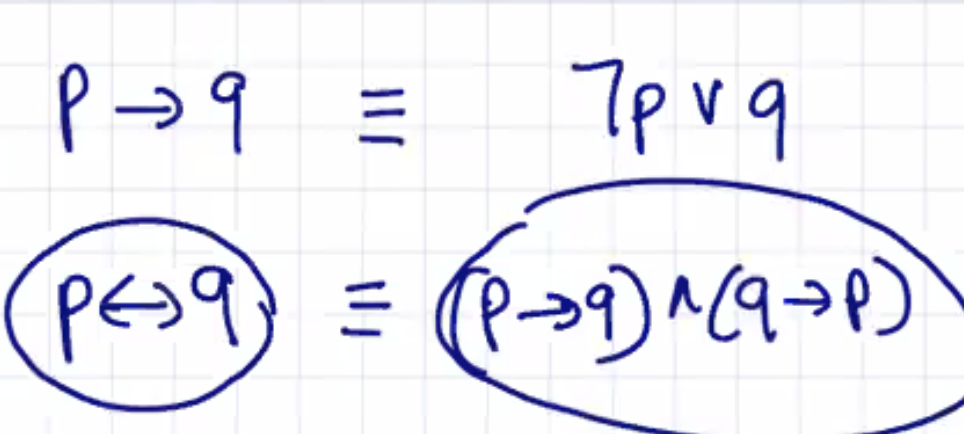 p → q ≡ ¬p ∨ q
p ↔ q ≡ (p → q) ∧ (q → p)